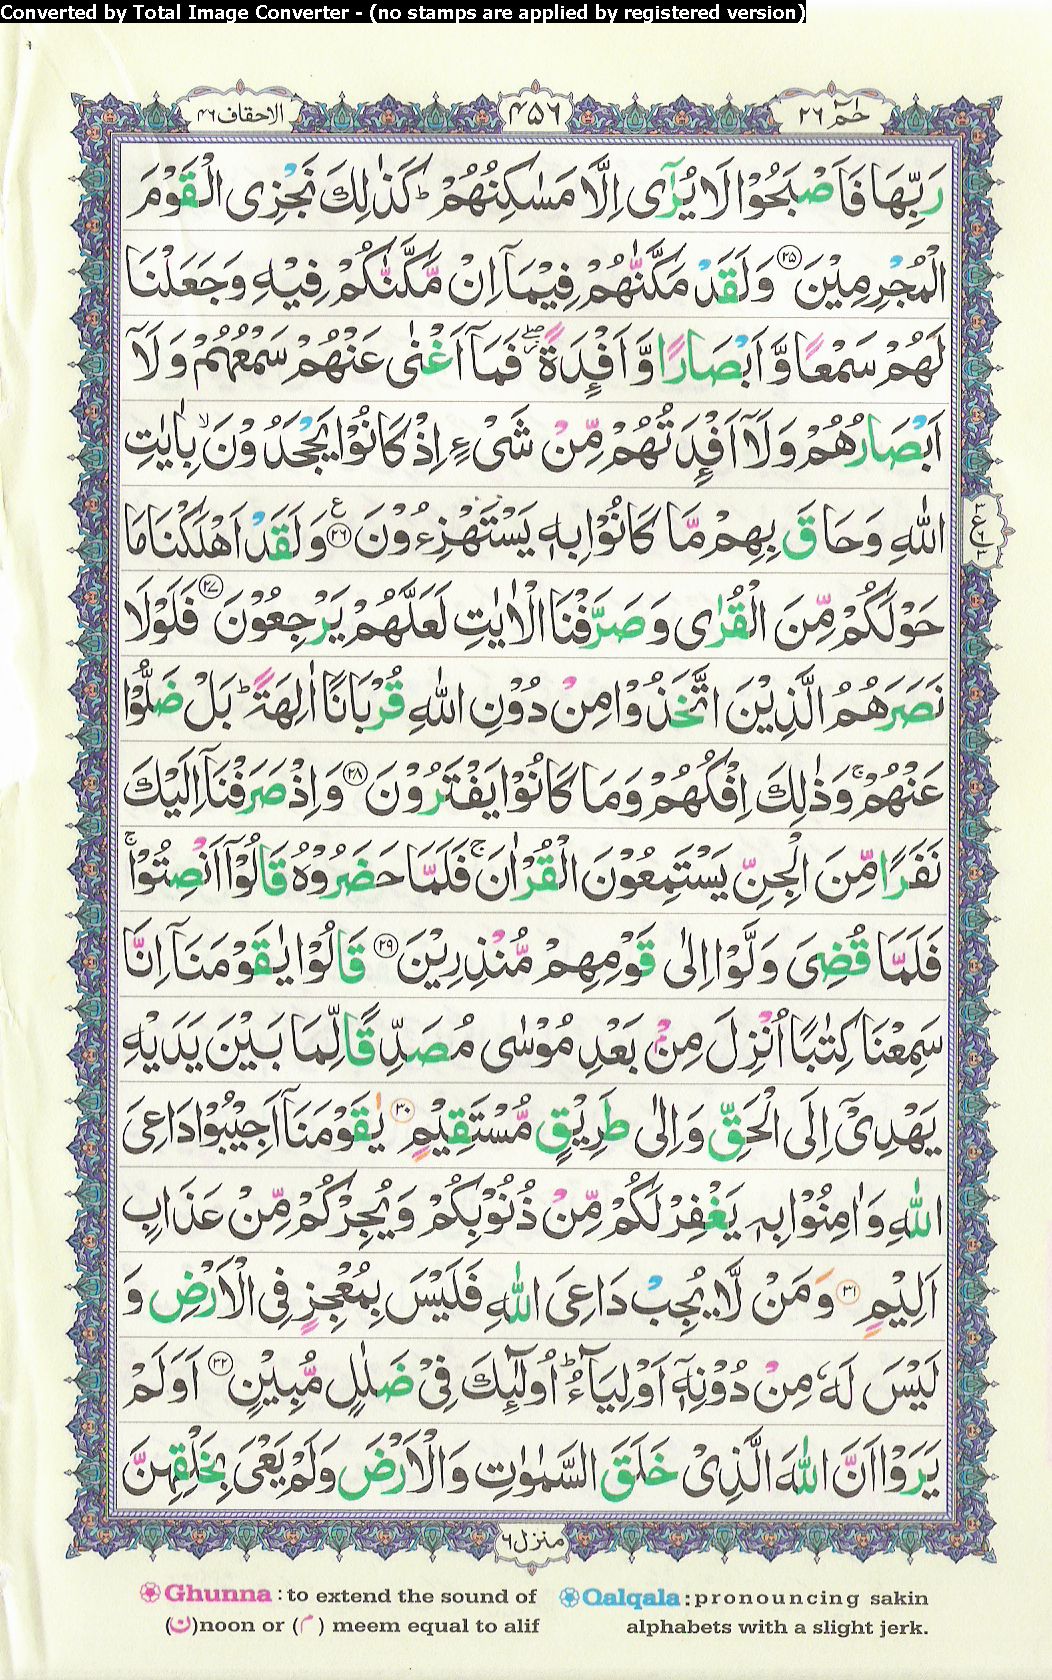 Converted by Total Image Converter - (no stamps are applied by registered version)
حٰمٓ ٢٦
٤٥٦
الاحقاف ٤٦
رَبِّهَا فَاَصْبَحُوْا لَا يُرٰٓى اِلَّا مَسٰكِنُهُمْ ؕ كَذٰلِكَ نَجْزِى الْقَوْمَ
الْمُجْرِمِيْنَ ﴿۲۵﴾ وَلَقَدْ مَكَّنّٰهُمْ فِيْمَاۤ اِنْ مَّكَّنّٰكُمْ فِيْهِ وَجَعَلْنَا
لَهُمْ سَمْعًا وَّاَبْصَارًا وَّاَفْـِٕدَةً ۖؗ فَمَاۤ اَغْنٰى عَنْهُمْ سَمْعُهُمْ وَلَاۤ
اَبْصَارُهُمْ وَلَاۤ اَفْـِٕدَتُهُمْ مِّنْ شَىْءٍ اِذْ كَانُوْا يَجْحَدُوْنَ ۙ بِاٰيٰتِ
اللّٰهِ وَحَاقَ بِهِمْ مَّا كَانُوْا بِهٖ يَسْتَهْزِءُوْنَ ﴿۲۶﴾ ع وَلَقَدْ اَهْلَكْنَا مَا
حَوْلَكُمْ مِّنَ الْقُرٰى وَصَرَّفْنَا الْاٰيٰتِ لَعَلَّهُمْ يَرْجِعُوْنَ ﴿۲۷﴾ فَلَوْلَا
نَصَرَهُمُ الَّذِيْنَ اتَّخَذُوْا مِنْ دُوْنِ اللّٰهِ قُرْبَانًا اٰلِهَةً ؕ بَلْ ضَلُّوْا
عَنْهُمْ ۚ وَذٰلِكَ اِفْكُهُمْ وَمَا كَانُوْا يَفْتَرُوْنَ ﴿۲۸﴾ وَاِذْ صَرَفْنَاۤ اِلَيْكَ
نَفَرًا مِّنَ الْجِنِّ يَسْتَمِعُوْنَ الْقُرْاٰنَ ۚ فَلَمَّا حَضَرُوْهُ قَالُوْۤا اَنْصِتُوْا ۚ
فَلَمَّا قُضِىَ وَلَّوْا اِلٰى قَوْمِهِمْ مُّنْذِرِيْنَ ﴿۲۹﴾ قَالُوْا يٰقَوْمَنَاۤ اِنَّا
سَمِعْنَا كِتٰبًا اُنْزِلَ مِنْۢ بَعْدِ مُوْسٰى مُصَدِّقًا لِّمَا بَيْنَ يَدَيْهِ
يَهْدِىْۤ اِلَى الْحَقِّ وَاِلٰى طَرِيْقٍ مُّسْتَقِيْمٍ ﴿۳۰﴾ يٰقَوْمَنَاۤ اَجِيْبُوْا دَاعِىَ
اللّٰهِ وَاٰمِنُوْا بِهٖ يَغْفِرْ لَكُمْ مِّنْ ذُنُوْبِكُمْ وَيُجِرْكُمْ مِّنْ عَذَابٍ
اَلِيْمٍ ﴿۳۱﴾ وَمَنْ لَّا يُجِبْ دَاعِىَ اللّٰهِ فَلَيْسَ بِمُعْجِزٍ فِى الْاَرْضِ وَ
لَيْسَ لَهٗ مِنْ دُوْنِهٖۤ اَوْلِيَآءُ ؕ اُولٰٓئِكَ فِىْ ضَلٰلٍ مُّبِيْنٍ ﴿۳۲﴾ اَوَلَمْ
يَرَوْا اَنَّ اللّٰهَ الَّذِىْ خَلَقَ السَّمٰوٰتِ وَالْاَرْضَ وَلَمْ يَعْىَ بِخَلْقِهِنَّ
منزل ٦
Ghunna : to extend the sound of
(ن)noon or (م) meem equal to alif
Qalqala : pronouncing sakin
alphabets with a slight jerk.